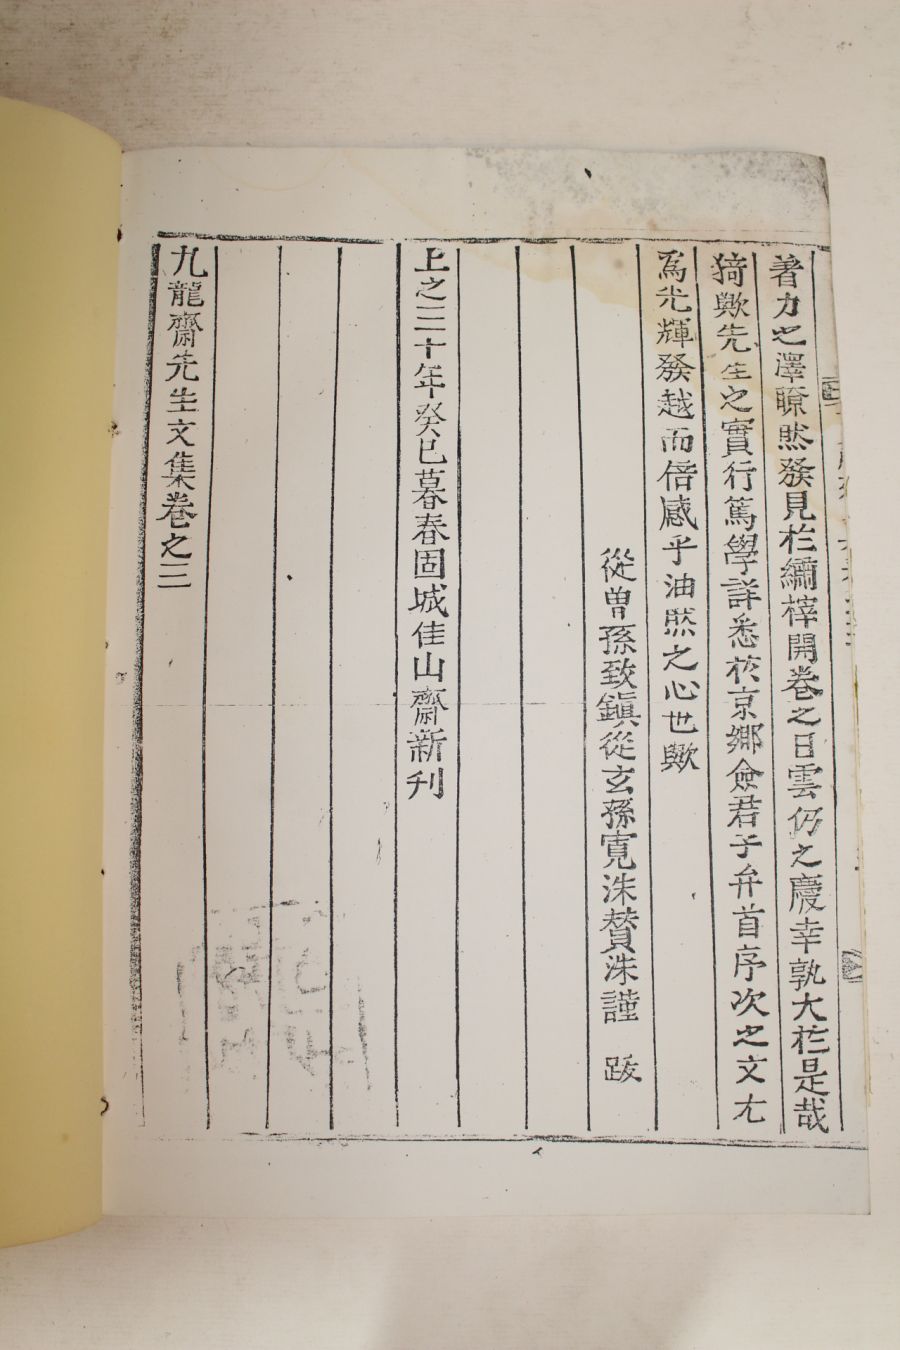 著力之澤瞭然發見於繡梓開卷之日雲仍之慶幸孰大於是哉
猗歟先生之實行篤學詳悉於京鄉僉君子弁首序次之文尤
爲光輝發越而倍感乎油然之心也歟
從曾孫致鎭從玄孫寬洙贊洙謹 跋
上之三十年癸巳暮春固城佳山齋新刊
九龍齋先生文集卷之三